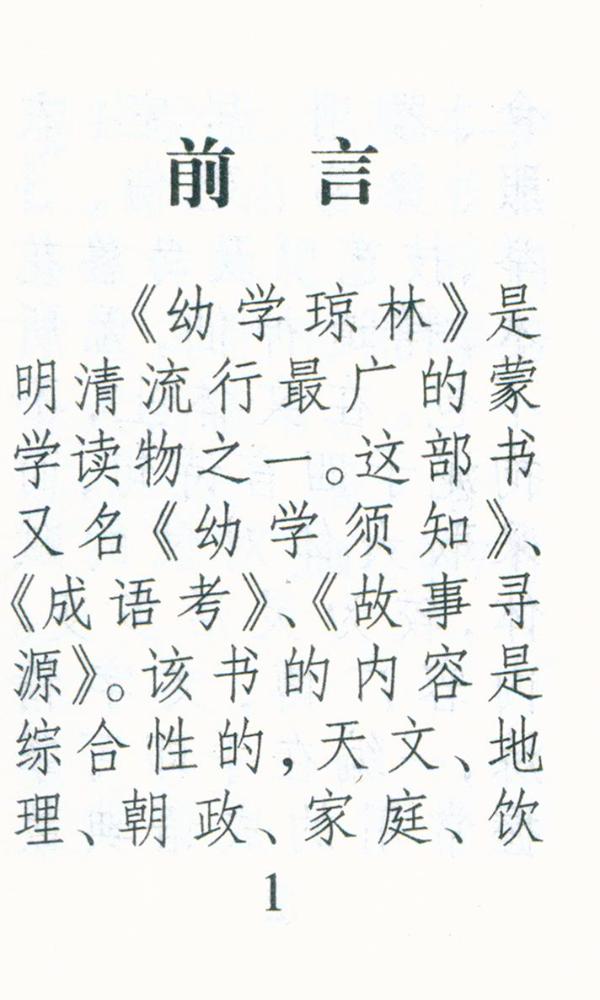 前言
《幼学琼林》是
明清流行最广的蒙
学读物之一。这部书
又名《幼学须知》、
《成语考》、《故事寻
源》。该书的内容是
综合性的,天文、地
理、朝政、家庭、饮
1